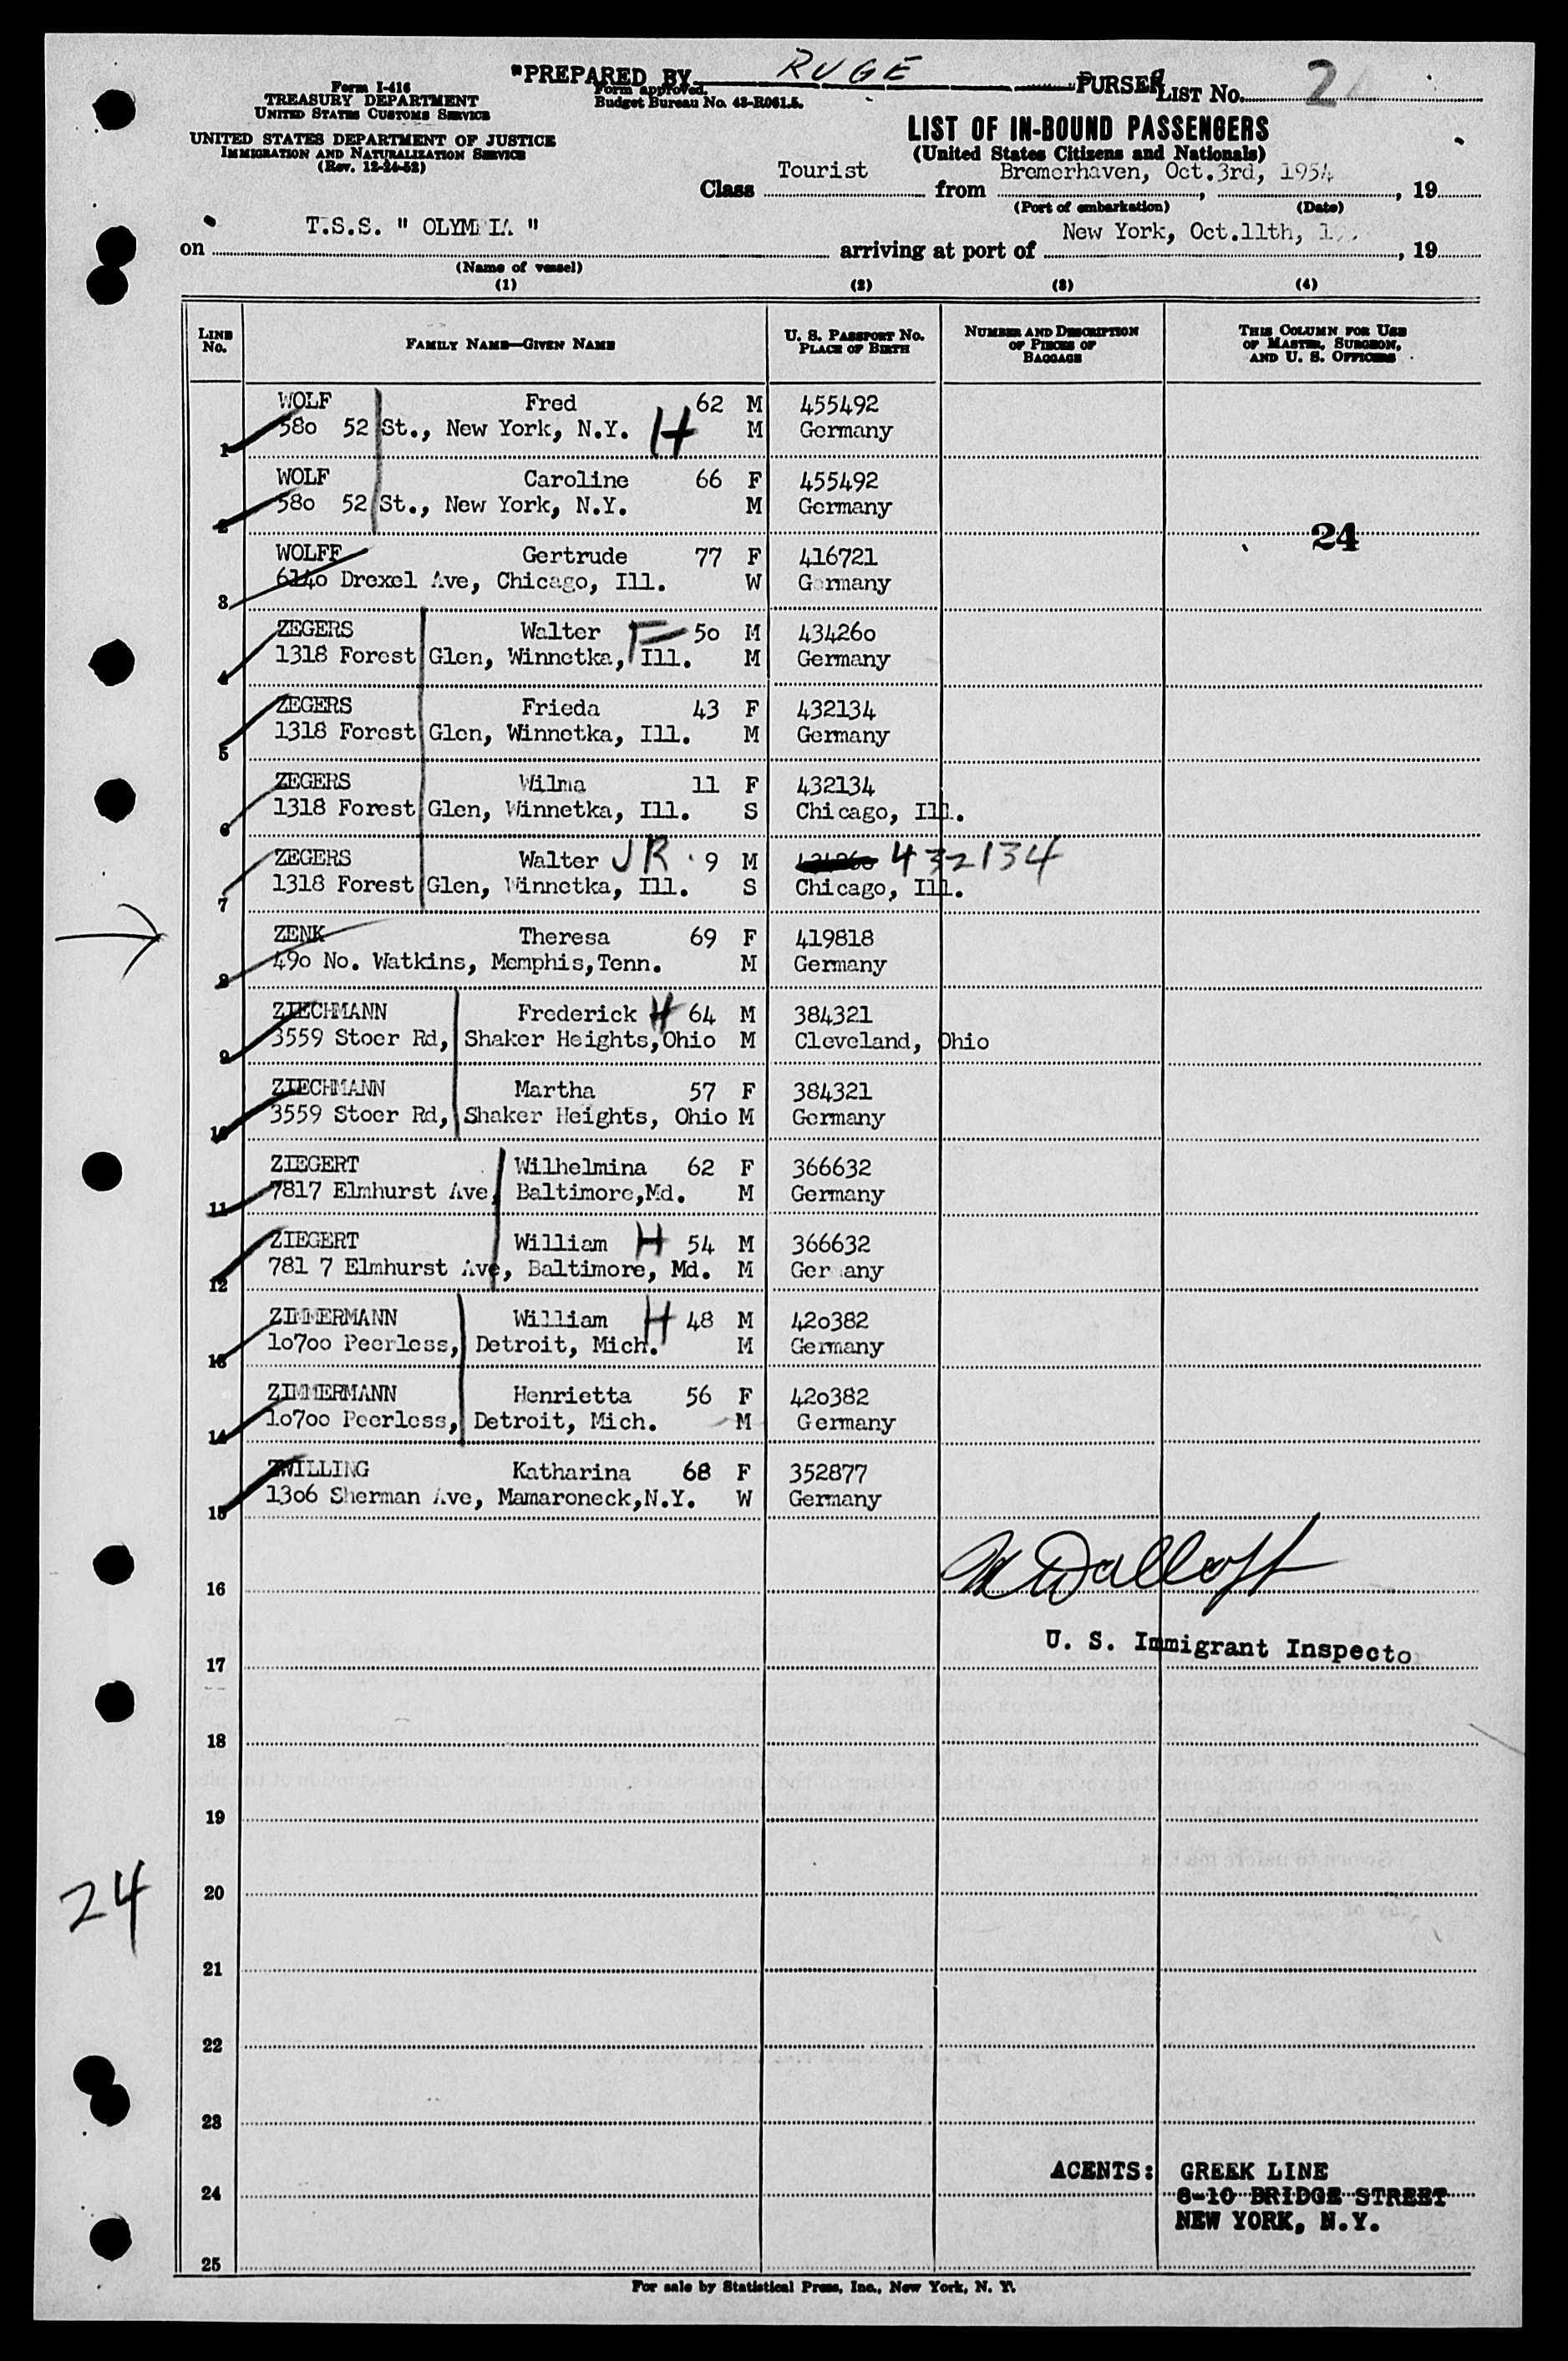 "PREPARED BY RUGE PURSER
Form I-416
TREASURY DEPARTMENT
UNITED STATES CUSTOMS SERVICE
Form approved.
Budget Bureau No. 43-R061.5.
LIST No. 2
UNITED STATES DEPARTMENT OF JUSTICE
IMMIGRATION AND NATURALIZATION SERVICE
(Rev. 12-24-52)
LIST OF IN-BOUND PASSENGERS
(United States Citizens and Nationals)
Class Tourist from Bremerhaven, Oct.3rd, 1954, 19
(Port of embarkation) (Date)
on T.S.S. " OLYMPIA " arriving at port of New York, Oct.11th, , 19
(Name of vessel)
(1) (2) (3) (4)
LINE No. FAMILY NAME—GIVEN NAME U. S. PASSPORT No. PLACE OF BIRTH NUMBER AND DESCRIPTION OF PIECES OF BAGGAGE THIS COLUMN FOR USE OF MASTER, SURGEON, AND U. S. OFFICERS
WOLF Fred 62 M 455492
1 580 52 St., New York, N.Y. H M Germany
WOLF Caroline 66 F 455492
2 580 52 St., New York, N.Y. M Germany
24
WOLFF Gertrude 77 F 416721
3 6140 Drexel Ave, Chicago, Ill. W Germany
ZEGERS Walter F 50 M 434260
4 1318 Forest Glen, Winnetka, Ill. M Germany
ZEGERS Frieda 43 F 432134
5 1318 Forest Glen, Winnetka, Ill. M Germany
ZEGERS Wilma 11 F 432134
6 1318 Forest Glen, Winnetka, Ill. S Chicago, Ill.
ZEGERS Walter JR 9 M 432134
7 1318 Forest Glen, Winnetka, Ill. S Chicago, Ill.
ZENK Theresa 69 F 419818
8 490 No. Watkins, Memphis,Tenn. M Germany
ZIECHMANN Frederick H 64 M 384321
9 3559 Stoer Rd, Shaker Heights,Ohio M Cleveland, Ohio
ZIECHMANN Martha 57 F 384321
10 3559 Stoer Rd, Shaker Heights, Ohio M Germany
ZIEGERT Wilhelmina 62 F 366632
11 7817 Elmhurst Ave, Baltimore,Md. M Germany
ZIEGERT William H 54 M 366632
12 781 7 Elmhurst Ave, Baltimore, Md. M Germany
ZIMMERMANN William H 48 M 420382
13 10700 Peerless, Detroit, Mich. M Germany
ZIMMERMANN Henrietta 56 F 420382
14 10700 Peerless, Detroit, Mich. M Germany
ZWILLING Katharina 68 F 352877
15 1306 Sherman Ave, Mamaroneck,N.Y. W Germany
16
U. S. Immigrant Inspector
17
18
19
20
24
21
22
23
AGENTS: GREEK LINE
24 8-10 BRIDGE STREET
NEW YORK, N.Y.
25
For sale by Statistical Press, Inc., New York, N. Y.